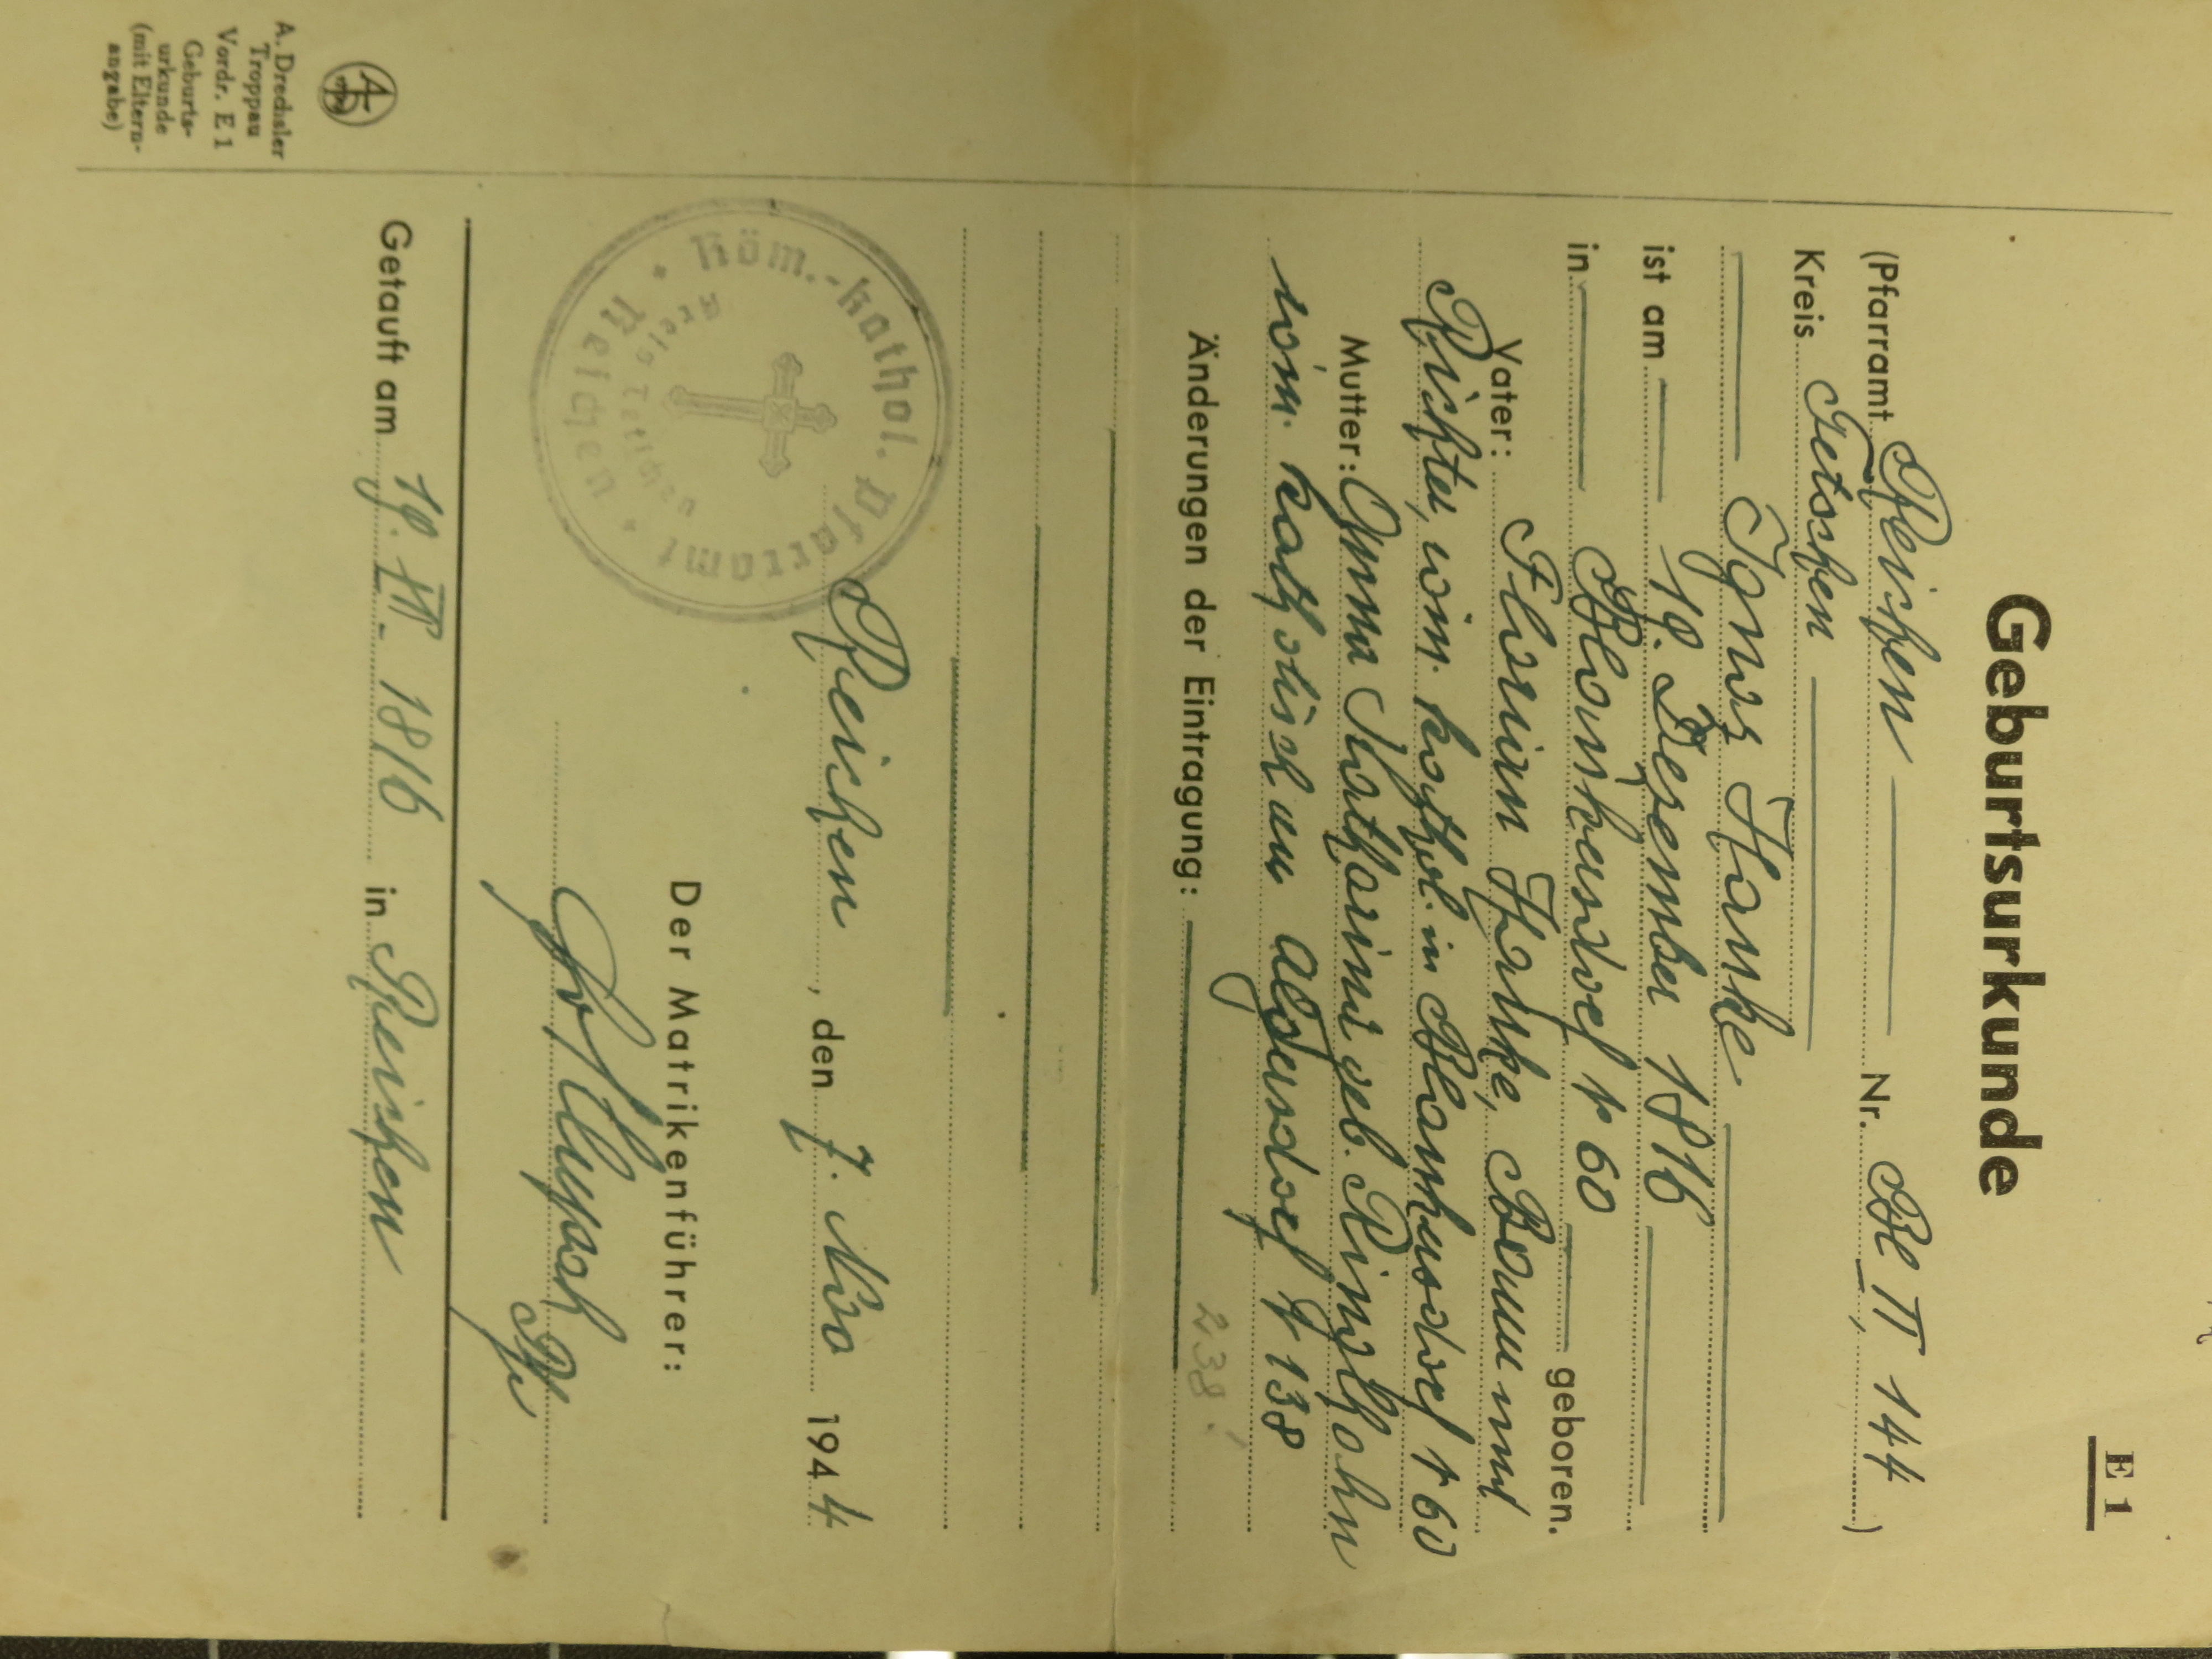 E 1
Geburtsurkunde
(Pfarramt Reichen Nr. Bl II, 144)
Kreis Tetschen
Ignaz Hanke
ist am 19. Dezember 1816
in Blankersdorf N 60 geboren.
Vater: Florian Hanke, Bauer und
Richter, röm. kathol. in Blankersdorf N 60
Mutter: Anna Katharina geb. Ringlhahn
röm. katholisch aus Algersdorf N 138
Änderungen der Eintragung: 238!
Röm.-kathol. Pfarramt
Kreis Tetschen
Reichen
Reichen, den 7. Nov 1944
Der Matrikenführer:
Pfr
Getauft am 19. XII. 1816 in Reichen
A. Drechsler
Troppau
Vordr. E 1
Geburts-
urkunde
(mit Eltern-
angabe)